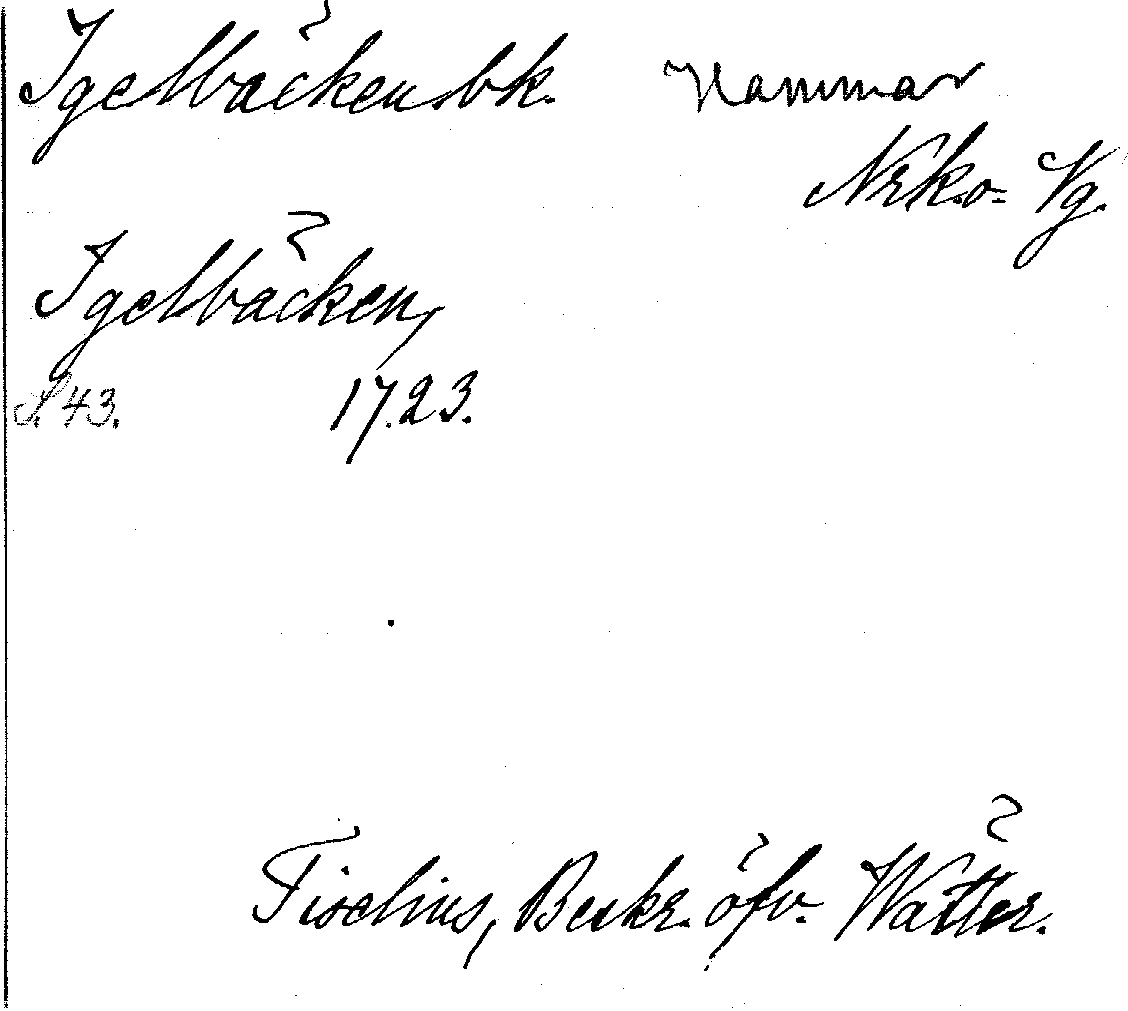 Igelbäcken bk. Hammar
Nrk. o. Vg.
Igelbäcken,
S. 43. 1723.
Tiselius, Beskr. öfv. Wätter.